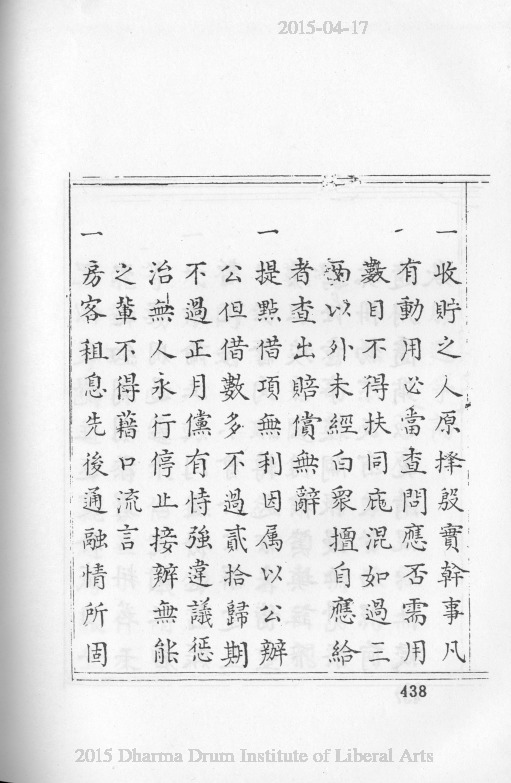 2015-04-17
一收貯之人原擇殷實幹事凡
有動用必當查問應否需用
數目不得扶同庇混如過三
兩以外未經白眾擅自應給
者查出賠償無辭
一提點借項無利因属以公辦
公但借數多不過貳拾歸期
不過正月儻有恃強違議懲
治無人永行停止接辦無能
之輩不得藉口流言
一房客租息先後通融情所固
438
2015 Dharma Drum Institute of Liberal Arts